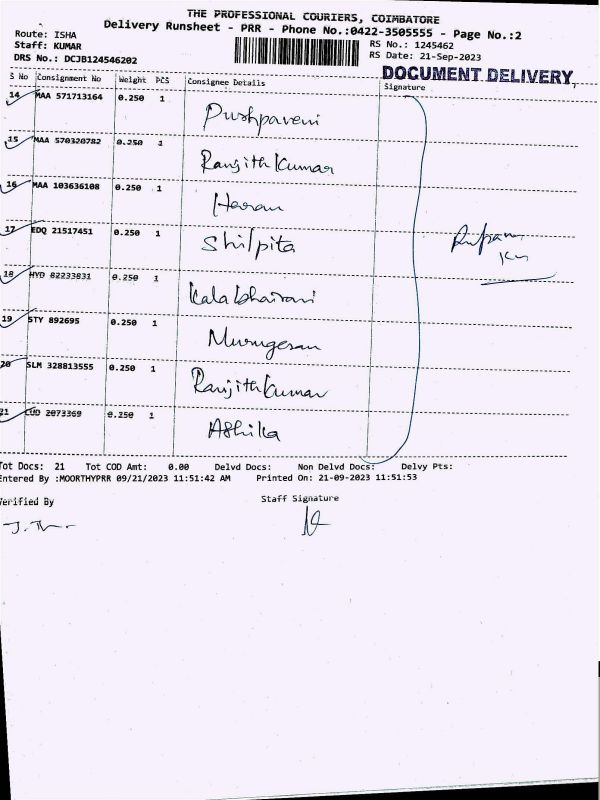 THE PROFESSIONAL COURIERS, COIMBATORE
Delivery Runsheet - PRR - Phone No.:0422-3505555 - Page No.:2
Route: ISHA
Staff: KUMAR
RS No.: 1245462
DRS No.: DCJB124546202
RS Date: 21-Sep-2023
DOCUMENT DELIVERY,
S No Consignment No Weight PCS Consignee Details Signature
14 MAA 571713164 0.250 1 Pushpaveni
15 MAA 570320782 0.250 1 Ranjith Kumar
16 MAA 103636108 0.250 1 Haran
17 EDQ 21517451 0.250 1 Shilpita
18 HYD 82233831 0.250 1 Kalabhairavi
19 STY 892695 0.250 1 Murugesan
20 SLM 328813555 0.250 1 Ranjith Kumar
21 LUD 2073369 0.250 1 Ashika
Tot Docs: 21 Tot COD Amt: 0.00 Delvd Docs: Non Delvd Docs: Delvy Pts:
Entered By :MOORTHYPRR 09/21/2023 11:51:42 AM Printed On: 21-09-2023 11:51:53
Verified By Staff Signature